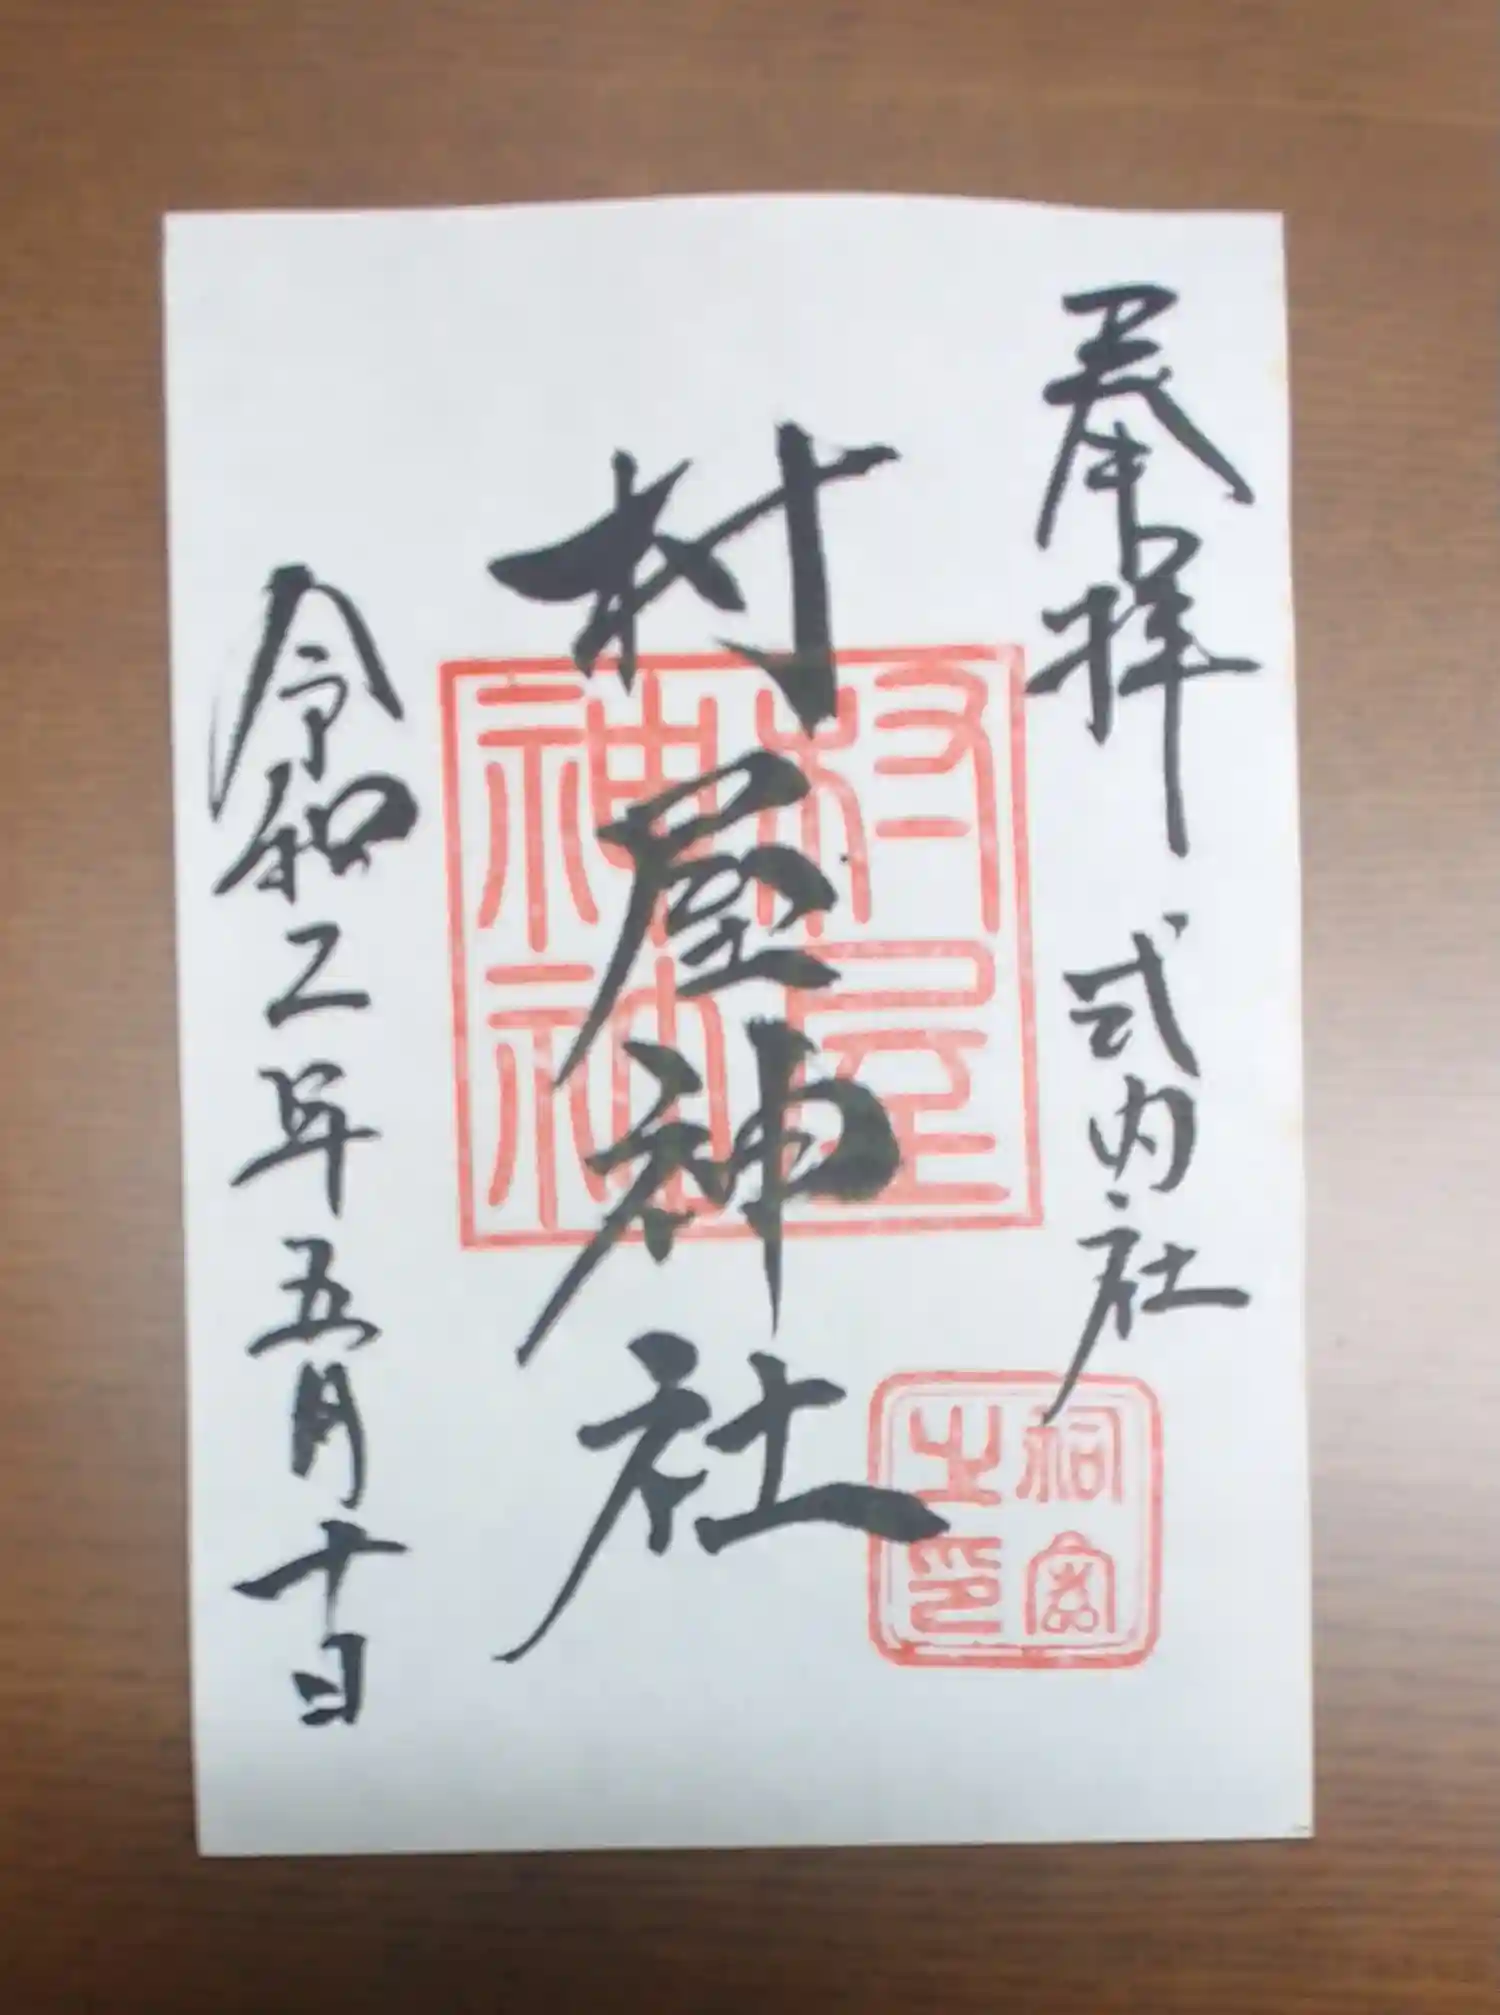 奉拝 式内社
村屋神社
令和二年五月十日
村屋
神社
祠官
之印